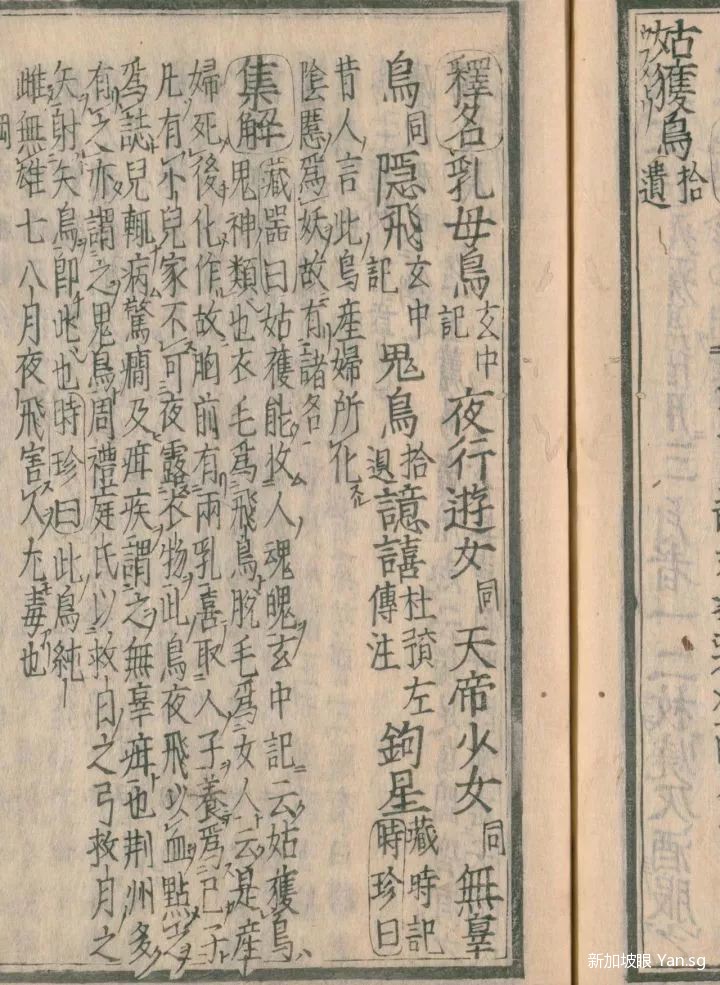 姑獲鳥 拾遺
釋名 乳母鳥 玄中記 夜行遊女 同 天帝少女 同 無辜
鳥 同 隱飛 玄中記 鬼鳥 拾遺 譩譆 杜預左傳注 鉤星 藏時記 時珍曰
昔人言此鳥産婦所化
陰慝爲妖故有諸名
集解 藏器曰姑獲能收人魂魄玄中記云姑獲鳥
鬼神類也衣毛爲飛鳥脱毛爲女人云是産
婦死後化作故胸前有兩乳喜取人子養爲己子
凡有小兒家不可夜露衣物此鳥夜飛以血點之
爲誌兒輒病驚癇及疳疾謂之無辜疳也荆州多
有之亦謂之鬼鳥周禮庭氏以救日之弓救月之
矢射矢鳥即此也時珍曰此鳥純
雌無雄七八月夜飛害人尤毒也
新加坡眼 Yan.sg